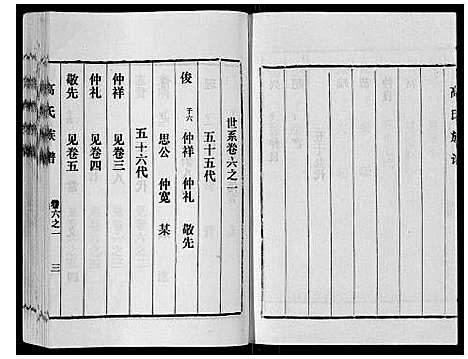 高氏族譜
世系卷六之一
五十五代
俊 子六 仲祥 仲礼 敬先
思公 仲寬 某
五十六代
仲祥 见卷三
仲礼 见卷四
敬先 见卷五
高氏族譜 卷六之一 三